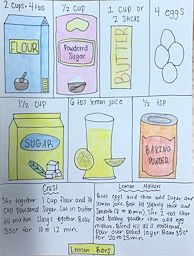 2 cups + 4 tbs
1/2 cup
1 cup or
2 sticks
4 eggs
FLOUR
Powdered
Sugar
BUTTER
1 1/2 cup
6 tbs lemon juice
1/2 tsp
SUGAR
BAKING
POWDER
Crust
Stir together 1 cup Flour and 1/2
cup powdered Sugar. Cut in butter
till mixture clings together. Bake
350° for 10 to 12 min.
Lemon Mixture
Beat eggs and then add Sugar and
lemon juice. Beat till slightly thick and
Smooth (8 to 10min). Stir 2 tbs Flour
and Baking powder then add egg
mixture. Blend till all is moistened.
Pour over baked layer. Bake 350°
for 20 to 25min.
Lemon Bars